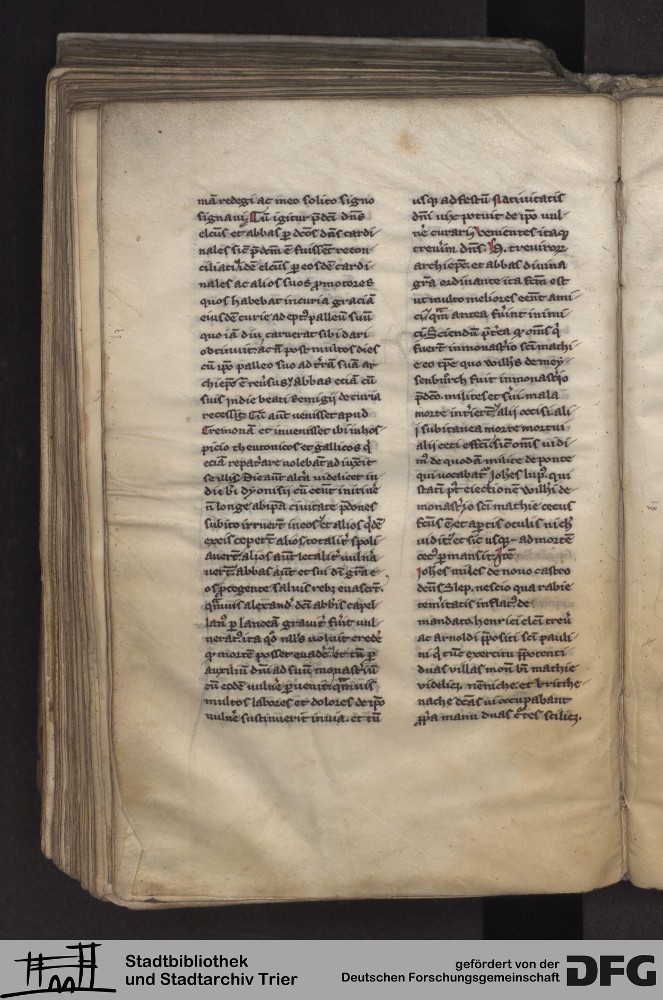 mā redegi ac meo solito signo
signaui. Cū igitur p̄dc̄i dn̄s
elcūs et abbas ꝑ dc̄os dn̄s cardi
nales sic̄ p̄dc̄m ē fuissēt recon
ciliati. idē elcūs ꝑ eosdē cardi
nales ac alios suos ꝓmotores
quos habebat in curia graciā
eiusdē curie adeptꝰ palleū suū
quo iā diu caruerat sibi dari
obtinuit. ac post multos dies
cū ip̄o palleo suo ad t̄rā suā ar
chiep̄c ē reūsus. Abbas eciā cū
suis in die beati Remigii de curia
recessit. Cū aut̄ venisset apud
Cremonā et inuenisset ibi in hos
picio theutonicos et gallicos q̄
eciā repat̄are volebāt adiūxit
se illis. Die aut̄ alt̄a videlicet in
die bi dyonisii cū eēnt in itin̄e
nō longe ab ip̄a ciuitate p̄dones
subito irruerūt in eos et alios q̄dē
ex eis ceperūt alios totalit̄ spoli
auerūt. alios aut̄ letalit̄ vulna
uerūt. abbas aut̄ et sui dī grā e
os ꝓtegente saluis rebꝫ euaserūt.
quāuis alexand̄ dc̄i abb̄is capel
lanꝰ ꝑ lanceā grauit̄ fuīt vul
neratꝰ. ita qd̄ nll̄s voluit crede
ꝙ mortē posset euadē. et tn̄ ꝑ
auxiliū dn̄i ad suū monast̄iū
cū eodē vuln̄e ꝑuenit. quāuis
multos labores et dolores de ip̄o
vuln̄e sustinuerit in via. et tn̄
usqꝫ ad festū Natiuitatis
dn̄i vix potuit de ip̄o vul
n̄e curari. Venientes itaqꝫ
treuīm dn̄s. H. treuiroꝝ
archiep̄c. et abbas diuina
grā ordinante ita fcm̄ est
ut multo meliores eēnt ami
ci qm̄ antea fuīnt inimi
ci. Sciendū p̄t̄ea ꝙ om̄s q̄
fuerūt in monast̄io sc̄i mathi
e eo tp̄e quo willhs de mey
senburch fuit in monast̄io
p̄dc̄o. milites et s̄ui mala
morte int̄ierūt. alii occisi. ali
i subitanea morte mortui
alii ceci effecti sic̄ om̄s vidi
mꝰ de quodā milite de ponte
qui vocabat̄ Joh̄es lupꝰ. qui
statī p̄t electionē willhi de
monast̄io sc̄i mathie cecus
fcūs ē. et aꝑtis oculis nich̄
vidit. et sic usqꝫ ad mortē
cecꝰ ꝑmansit. Itē
Joh̄es miles de nouo castro
dcūs Slep. nescio qua rabie
tem̄itatis inflatꝰ. de
mandato henrici elc̄i treū
ac arnoldi p̄positi sc̄i pauli
ni q̄ tūc exercitu p̄potenti
duas villas mon̄ bī mathie
videlicꝫ. nēniche. et kritche
nache dc̄as vi occupabant
ꝓp̄a manu duas c̄tes scilicꝫ.
Stadtbibliothek
und Stadtarchiv Trier
gefördert von der
Deutschen Forschungsgemeinschaft
DFG